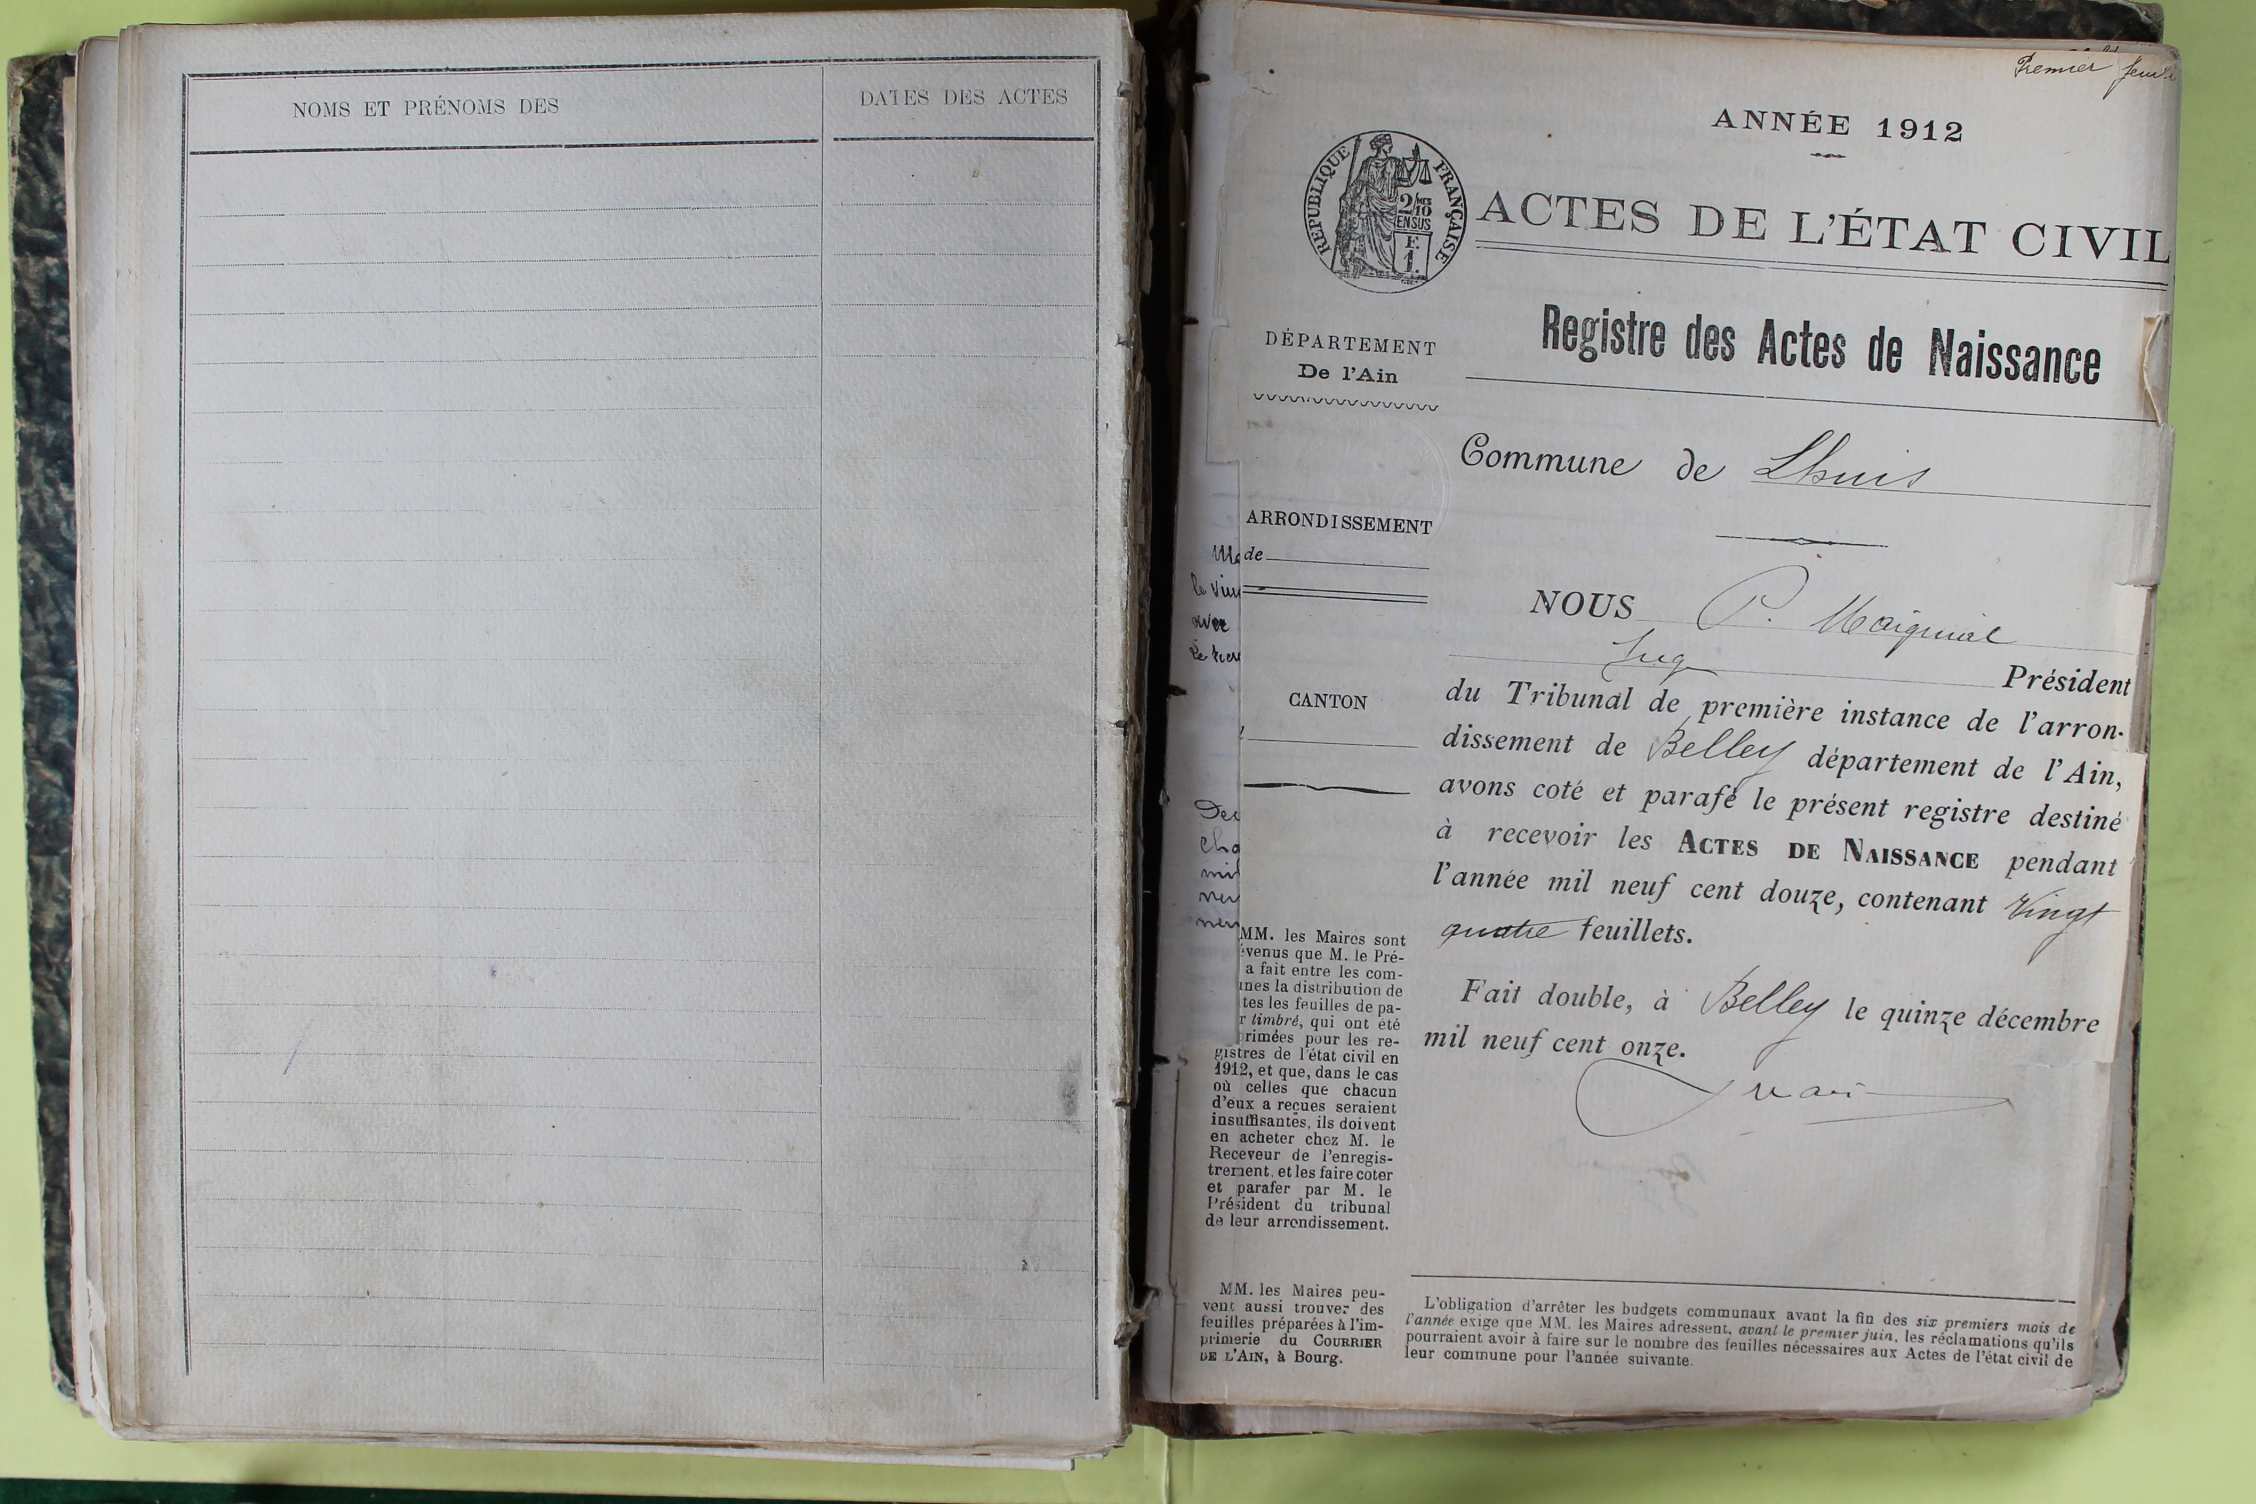 NOMS ET PRÉNOMS DES
DATES DES ACTES
Premier
ANNÉE 1912
RÉPUBLIQUE FRANÇAISE
2/10
EN SUS
F.
1.
ACTES DE L'ÉTAT CIVIL
Registre des Actes de Naissance
DÉPARTEMENT
De l'Ain
Commune de Lhuis
ARRONDISSEMENT
de
NOUS P.
Juge
Président
du Tribunal de première instance de l'arron-
dissement de Belley département de l'Ain,
avons coté et parafé le présent registre destiné
à recevoir les ACTES DE NAISSANCE pendant
l'année mil neuf cent douze, contenant Vingt
quatre feuillets.
Fait double, à Belley le quinze décembre
mil neuf cent onze.
CANTON
MM. les Maires sont
évenus que M. le Pré-
a fait entre les com-
unes la distribution de
tes les feuilles de pa-
r timbré, qui ont été
primées pour les re-
gistres de l'état civil en
1912, et que, dans le cas
où celles que chacun
d'eux a reçues seraient
insuffisantes, ils doivent
en acheter chez M. le
Receveur de l'enregis-
trement, et les faire coter
et parafer par M. le
Président du tribunal
de leur arrondissement.
MM. les Maires peu-
vent aussi trouver des
feuilles préparées à l'im-
primerie du COURRIER
DE L'AIN, à Bourg.
L'obligation d'arrêter les budgets communaux avant la fin des six premiers mois de
l'année exige que MM. les Maires adressent, avant le premier juin, les réclamations qu'ils
pourraient avoir à faire sur le nombre des feuilles nécessaires aux Actes de l'état civil de
leur commune pour l'année suivante.